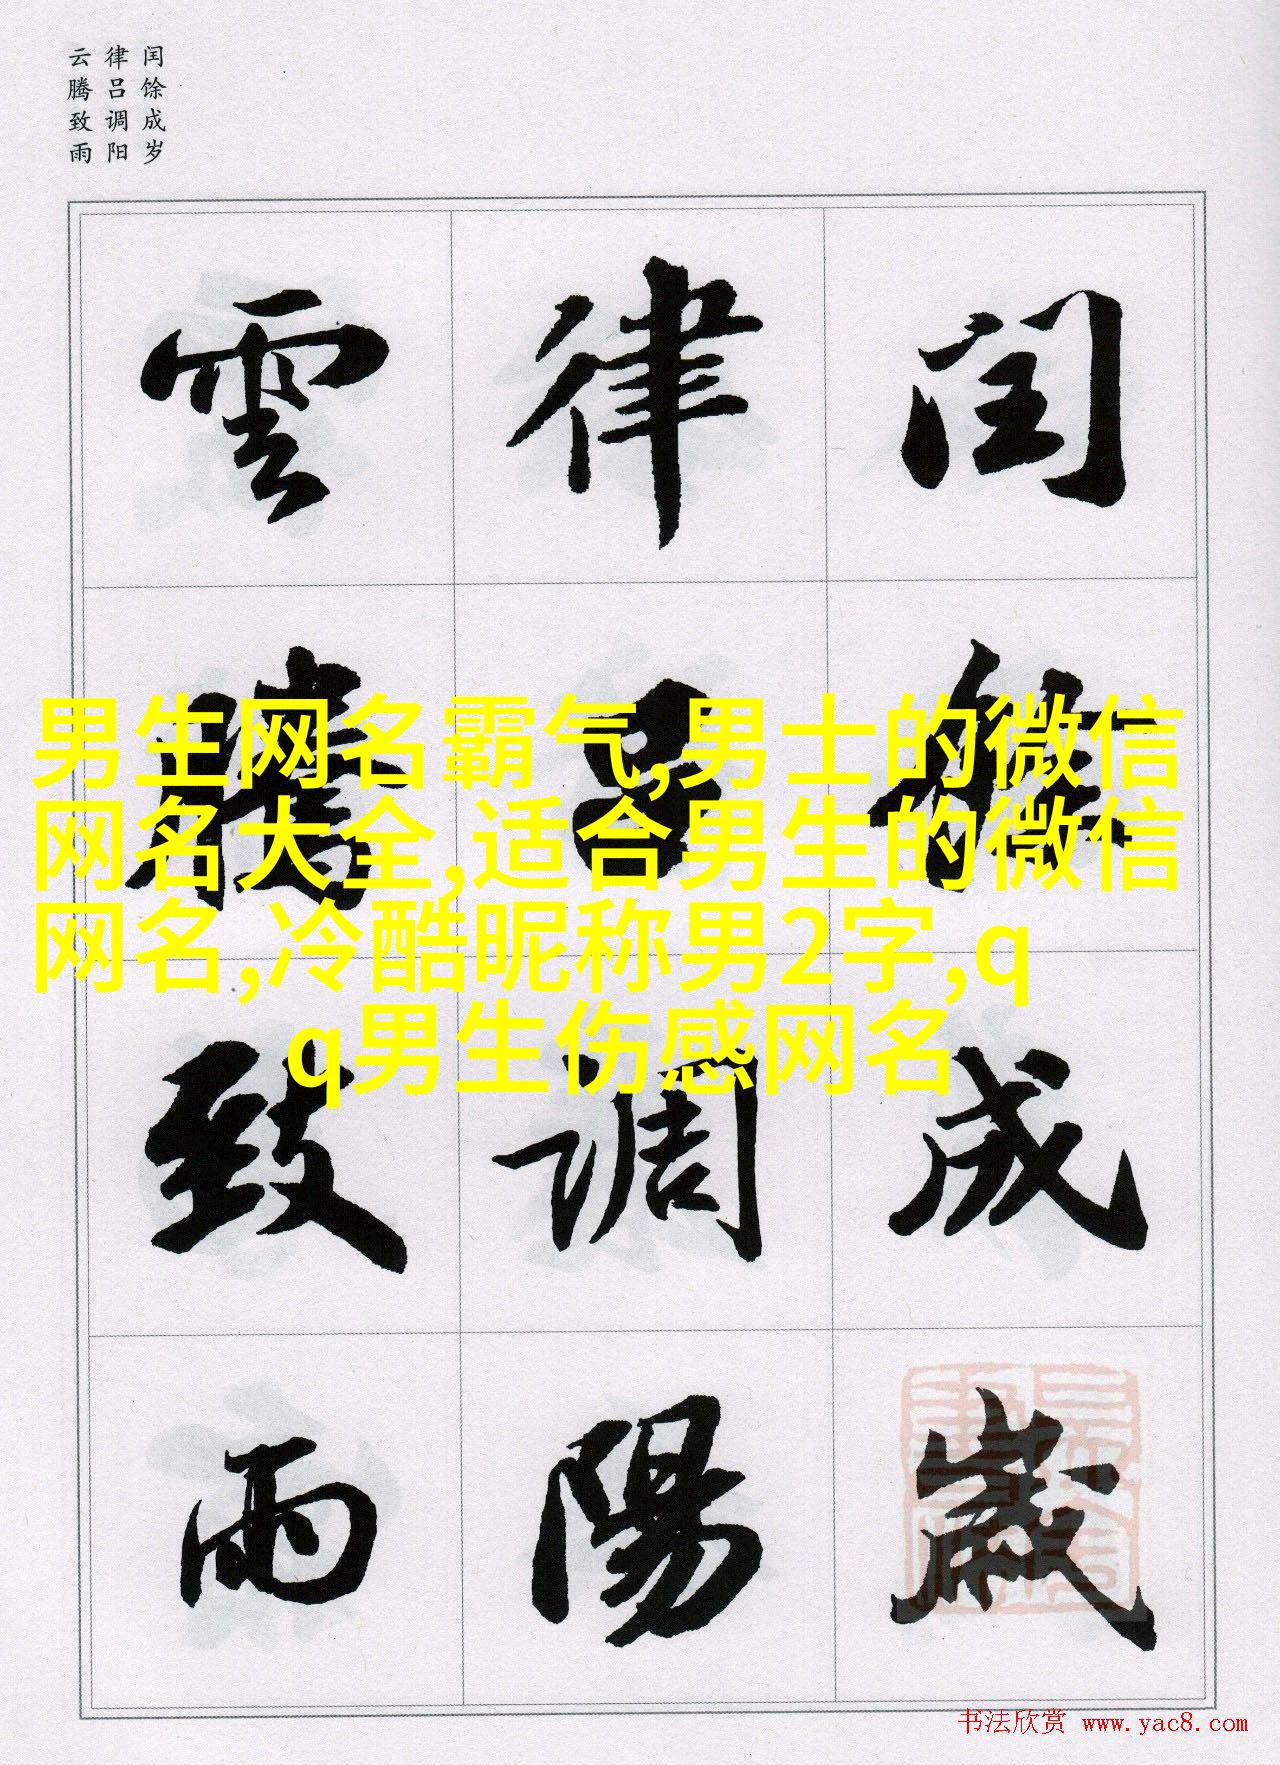 闰馀成岁
律吕调阳
云腾致雨
闰餘成歲
律吕調陽
雲騰致雨
男生网名霸气,男士的微信
网名大全,适合男生的微信
网名,冷酷昵称男2字,q
q男生伤感网名
书法欣赏 www.yac8.com